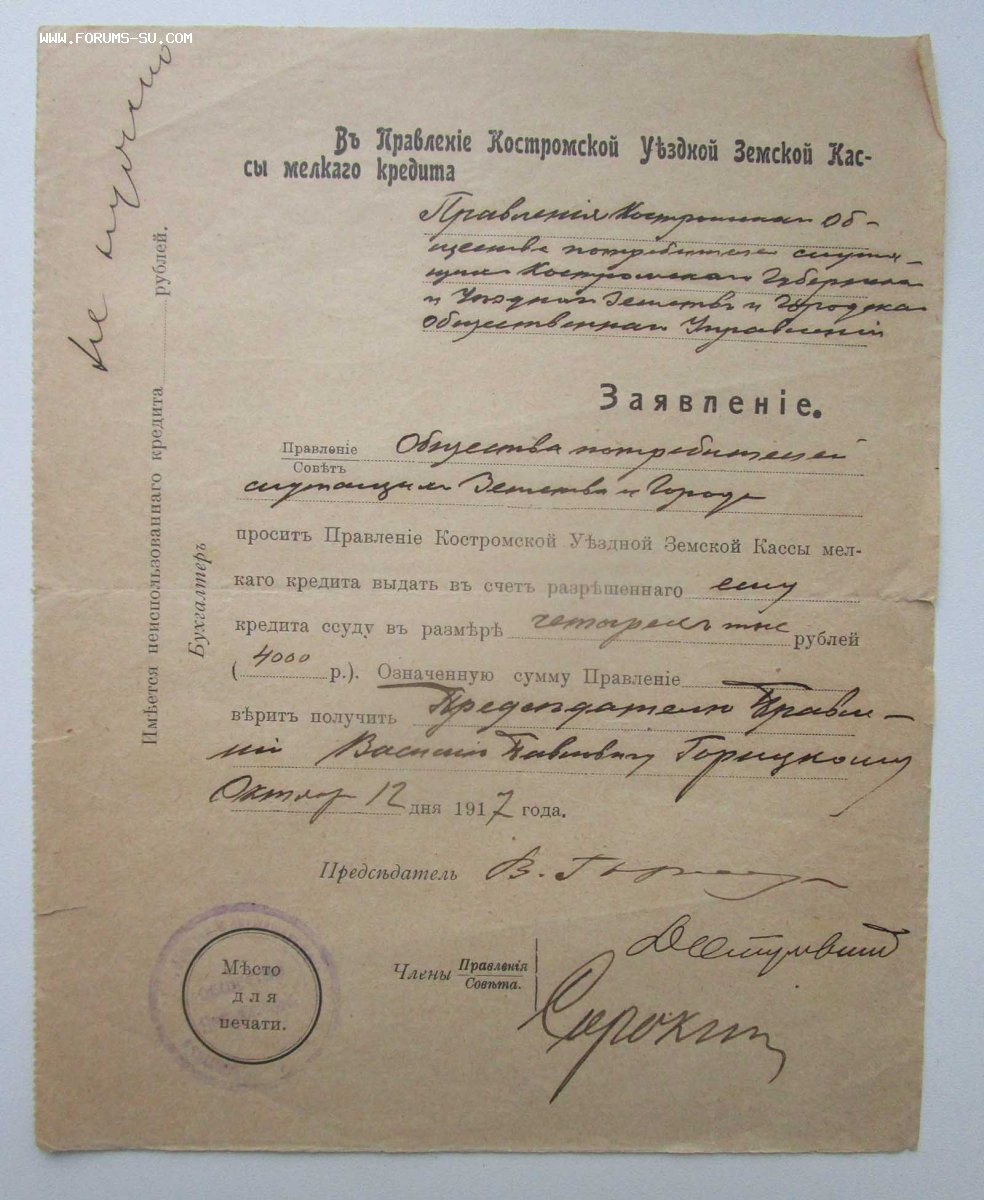 WWW.FORUMS-SU.COM
Въ Правленіе Костромской Уѣздной Земской Кас-
сы мелкаго кредита
Правленія Костромского Об-
щества потребителей служа-
щихъ Костромскаго Губернска
и Уѣзднаго Земствъ и Городска
Общественнаго Управленій
Заявленіе.
Правленіе
Совѣтъ
Общества потребителей
служащихъ Земства и Города
проситъ Правленіе Костромской Уѣздной Земской Кассы мел-
каго кредита выдать въ счетъ разрѣшеннаго ему
кредита ссуду въ размѣрѣ четырехъ тыс рублей
(4000 р.). Означенную сумму Правленіе
вѣритъ получить Предсѣдателю Правле-
нія Василію Павловичу Горицкому
Октября 12 дня 1917 года.
Предсѣдатель В.
Члены Правленія
Совѣта.
Сорокин
Мѣсто
для
печати.
Имѣется неиспользованнаго кредита рублей.
Бухгалтеръ
не